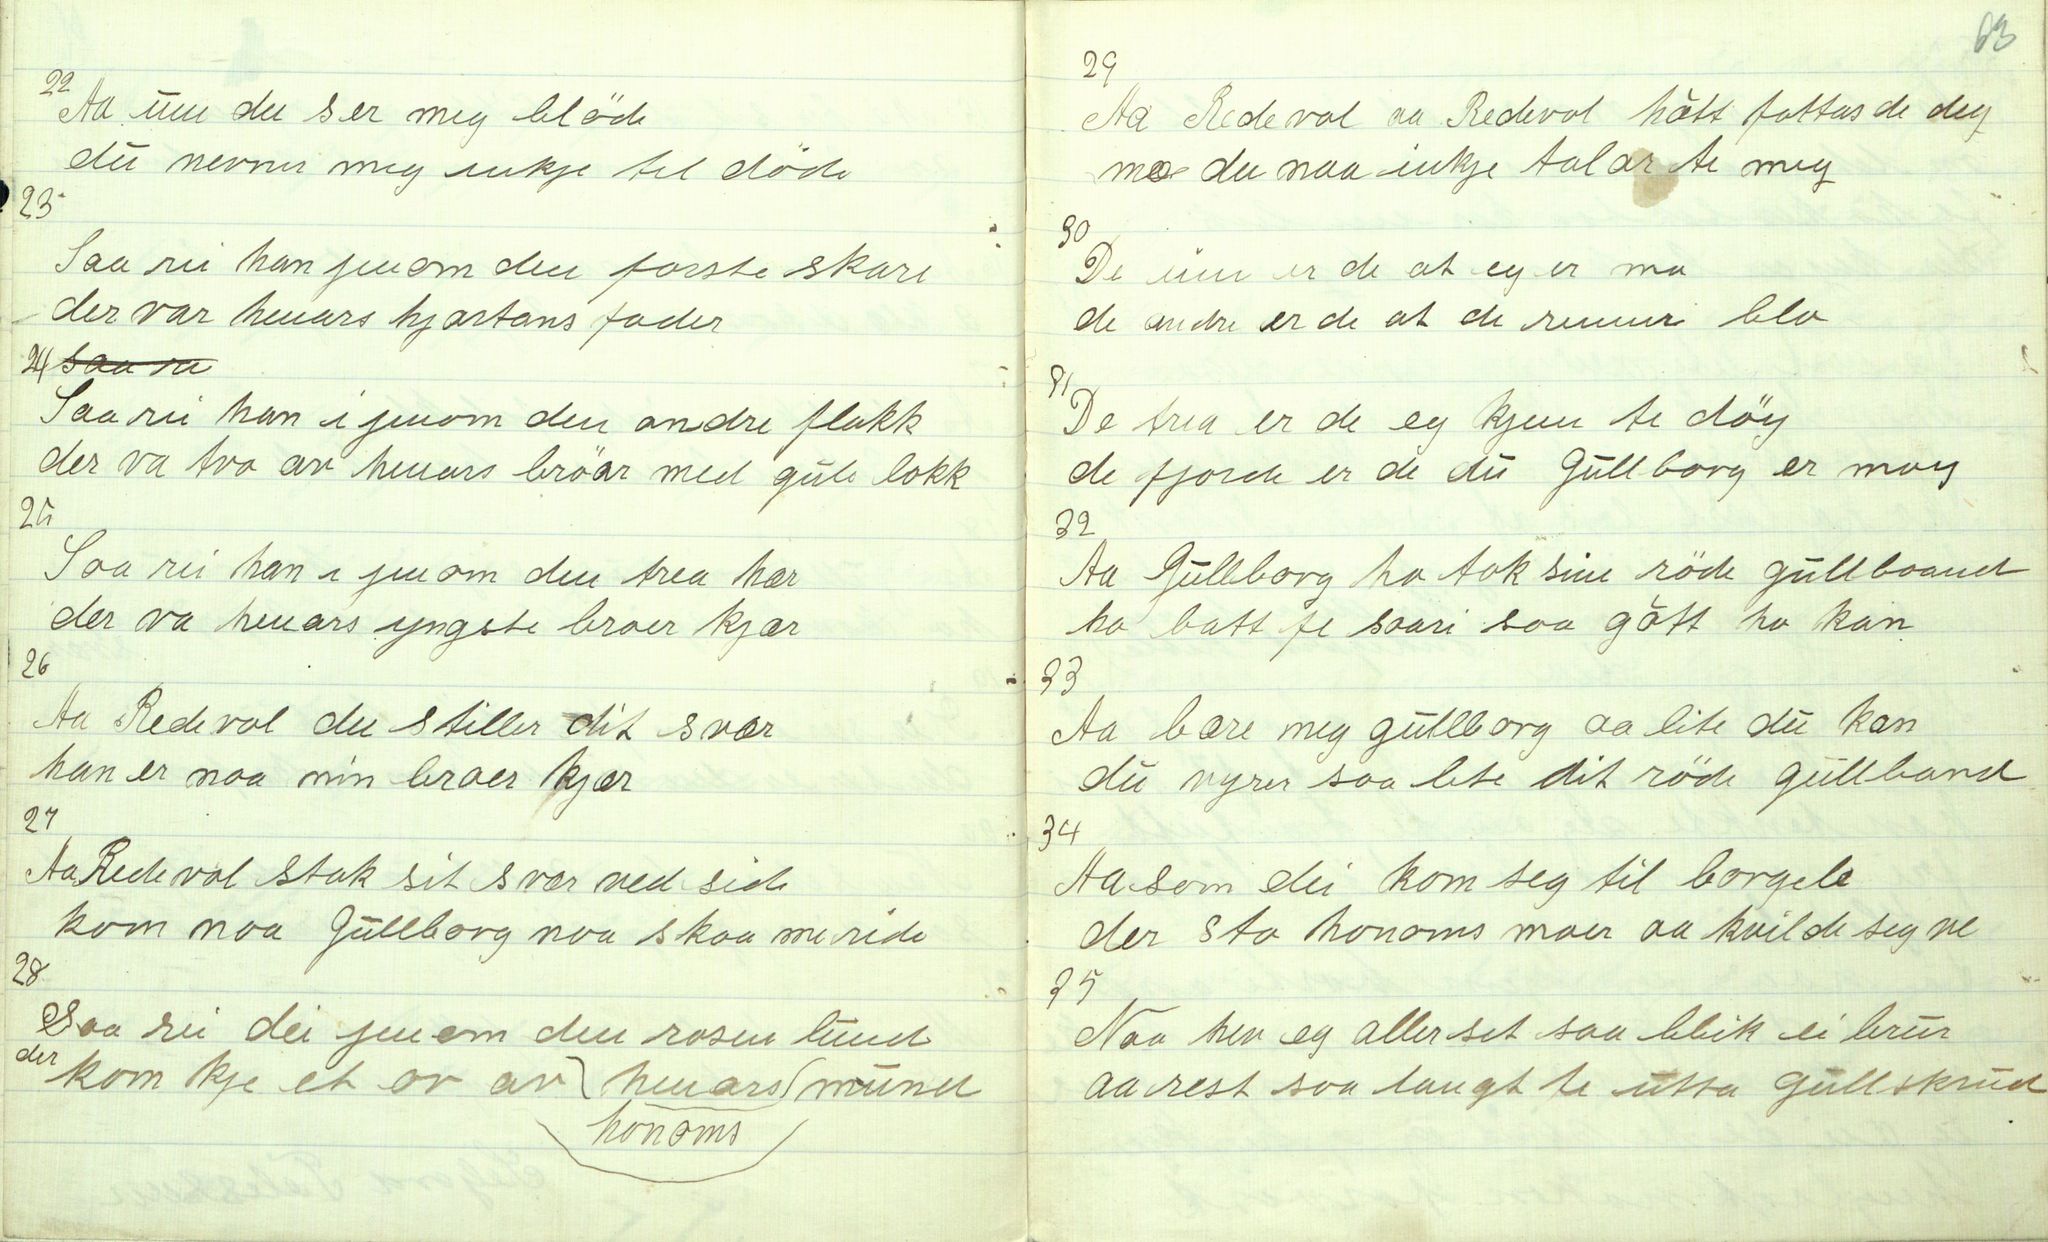 22
Aa um du ser meg blöde
du nevner meg inkje til döde
23
Saa rei han jenom den forste skare
der var hennars hjartans fader
24 saa re
Saa rei han i jenom den andre flokk
der va tvo av hennars bröar med gule lokk
25
Saa rei han i jenom den trea hær
der va hennars yngste broer kjær
26
Aa Redevol du stiller dit svær
han er naa min broer kjær
27
Aa Redevol stak sit svær ved side
kom naa Gullborg naa skaa me ride
28
Saa rei dei jenom den rosen lund
der kom kje et or av hennars mund
honoms
63
29
Aa Redevol aa Redevol hått fattas de deg
mæ du naa inkje talar te meg
30
De eine er de at eg er mo
de andre er de at de renner blo
31
De trea er de eg kjem te döy
de fjorde er de du Gullborg er moy
32
Aa Gullborg ho tok sine röde gullbaand
ho batt te saari saa gått ho kan
33
Aa bære meg gullborg aa lite du kan
du vyrer saa lite dit röde gullband
34
Aa som dei kom seg til borgele
der sto honoms moer aa kvilde seg ve
35
Naa hev eg aller set saa blik ei brur
aa rest saa langt te utta gullskrud